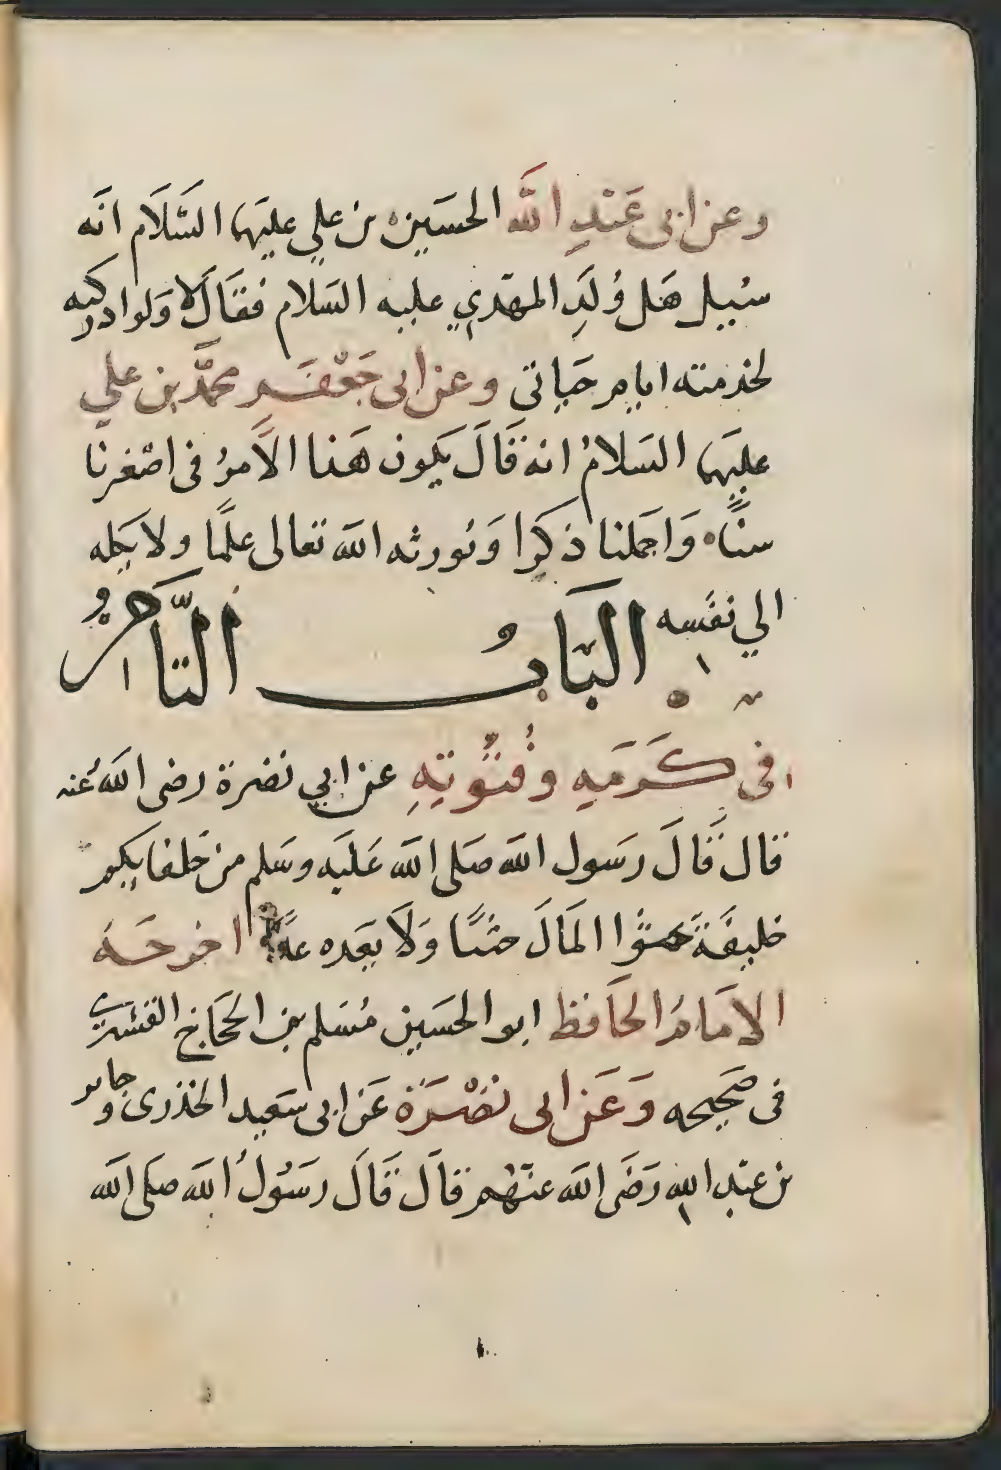 وعن ابى عَبْدِ اللَّه الحسَين بن علي عليهما السَّلَام انَه
سُيل هَل وُلِدَ المهَدي عليه السَلام فقَالَ لا وَلو ادركته
لخدمته ايام حَياتى وعن ابى جَعْفَر محمَّد بن علي
عليهما السَلامُ انه قَالَ يَكون هَذا الاَمرُ فى اصْغرنا
سنًّا وَاجملنا ذكرا وَيُورثه الله تعالى علمًا ولا يَكله
الي نفَسه البَابُ الثَّامِنُ
فى كَرَمِهِ وفُتُوتِهِ عن ابي نضرة رضى الله عُنه
قال قَالَ رسَول الله صَلى الله عَليَه وسَلم من خَلفايكم
خليفَة يَحثُوا المَالَ حثيًا وَلاَ يعَده عدًّا اخرجَهُ
الامَامُ الحَافظ ابو الحسَين مُسَلم بن الحجَاج القشيرى
فى صَحيحه وَعَن ابى نضْرَة عَن ابى سَعيد الخذرى وجابر
بن عبَد الله رَضَى الله عنَهْم قالَ قَالَ رسَوُل الله صَلى الله